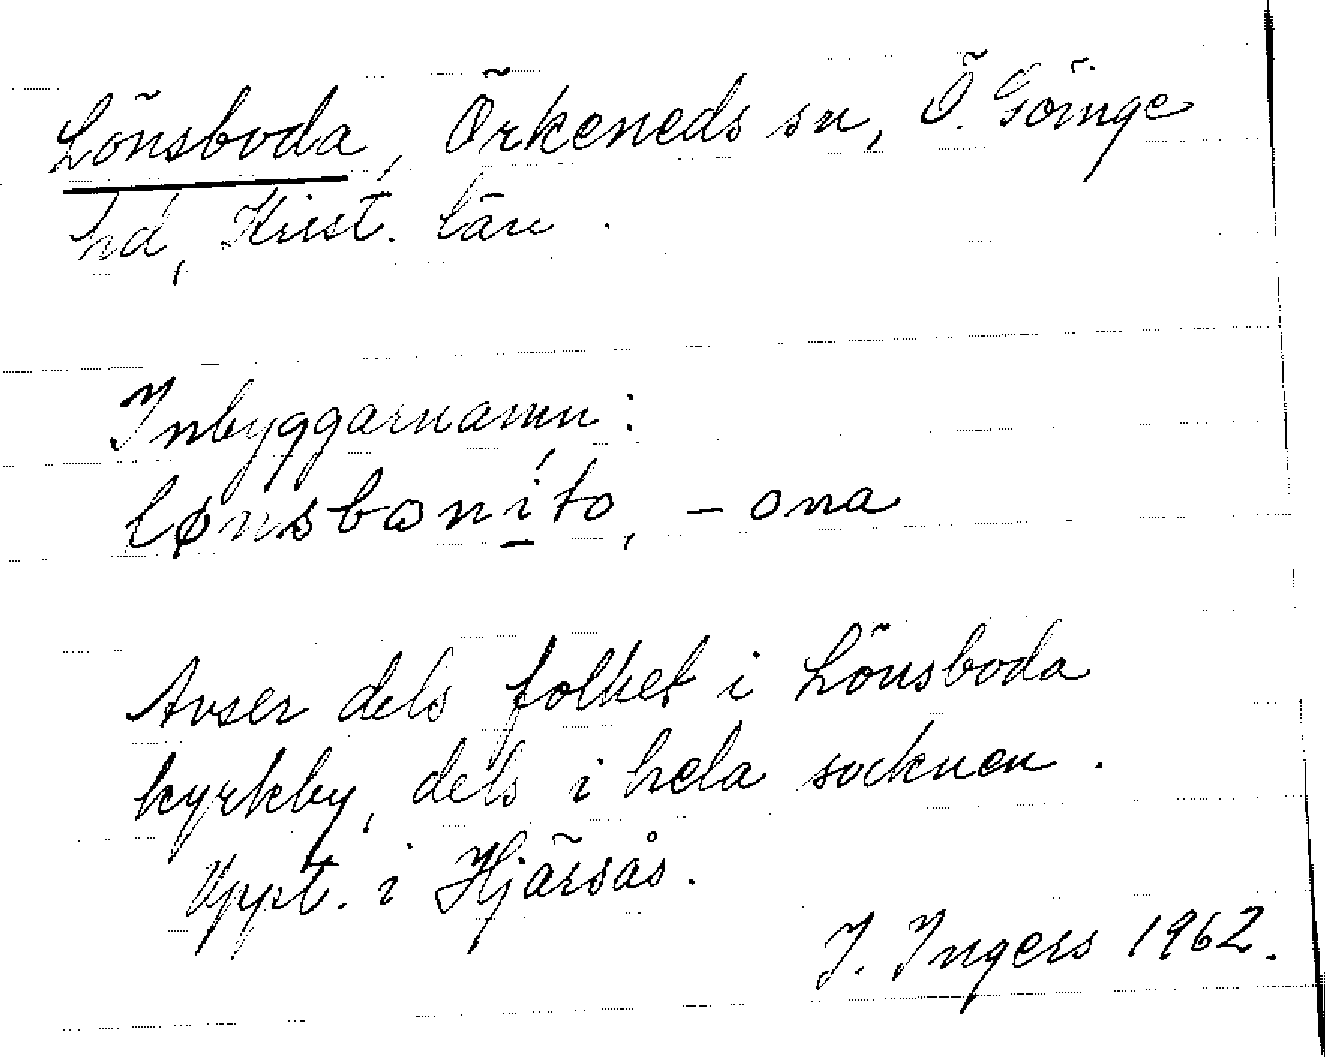 Lönsboda, Örkeneds sn, Ö. Göinge
hd, Krist. län.
Inbyggarnamn:
lønsbωníto, -ona
Avser dels folket i Lönsboda
kyrkby, dels i hela socknen.
Uppt. i Hjärsås.
I. Ingers 1962.